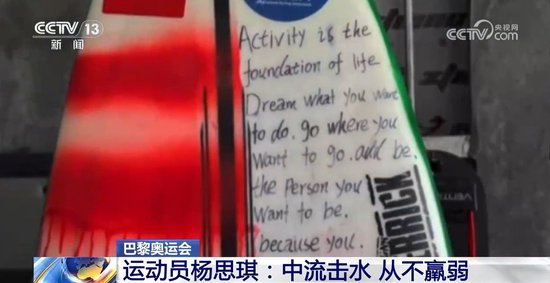 CCTV 13
新闻
CCTV 央视网
com
Activity is the
foundation of life
Dream what you want
to do. go where you
want to go. and be.
the person you
want to be.
because you.
RRICK
巴黎奥运会
运动员杨思琪：中流击水 从不羸弱